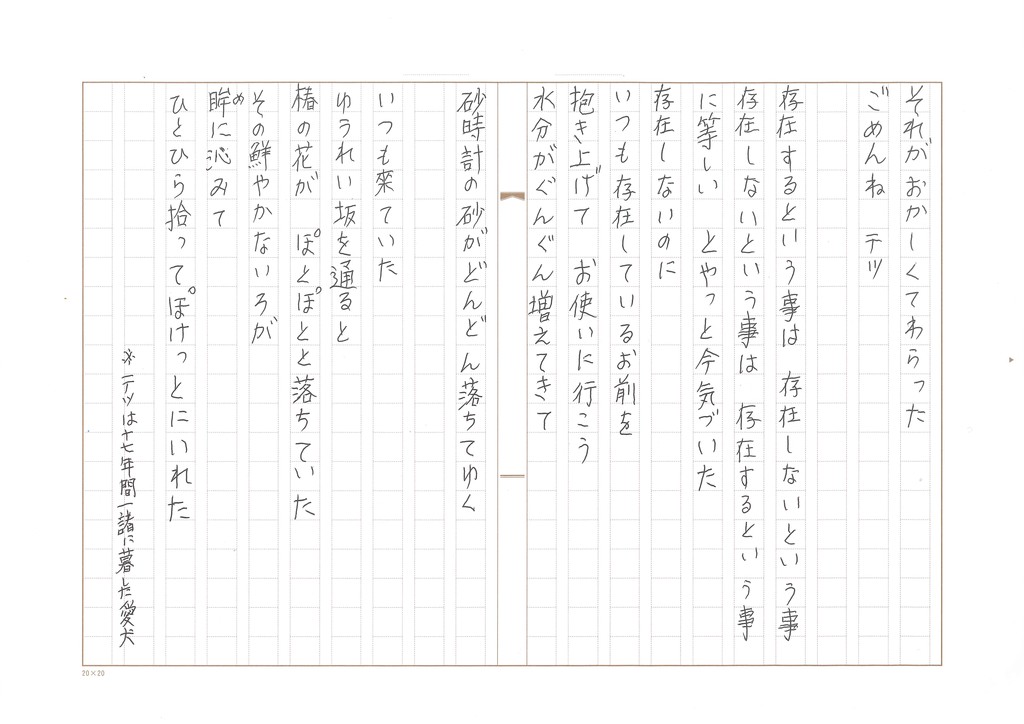 それがおかしくてわらった
ごめんね　テツ
存在するという事は　存在しないという事
存在しないという事は　存在するという事
に等しい　とやっと今気づいた
存在しないのに
いつも存在しているお前を
抱き上げて　お使いに行こう
水分がぐんぐん増えてきて
砂時計の砂がどんどん落ちてゆく
いつも来ていた
ゆうれい坂を通ると
椿の花が　ぽとぽとと落ちていた
その鮮やかないろが
眸に沁みて
め
ひとひら拾ってぽけっとにいれた
※テツは十七年間一諸に暮した愛犬
20×20